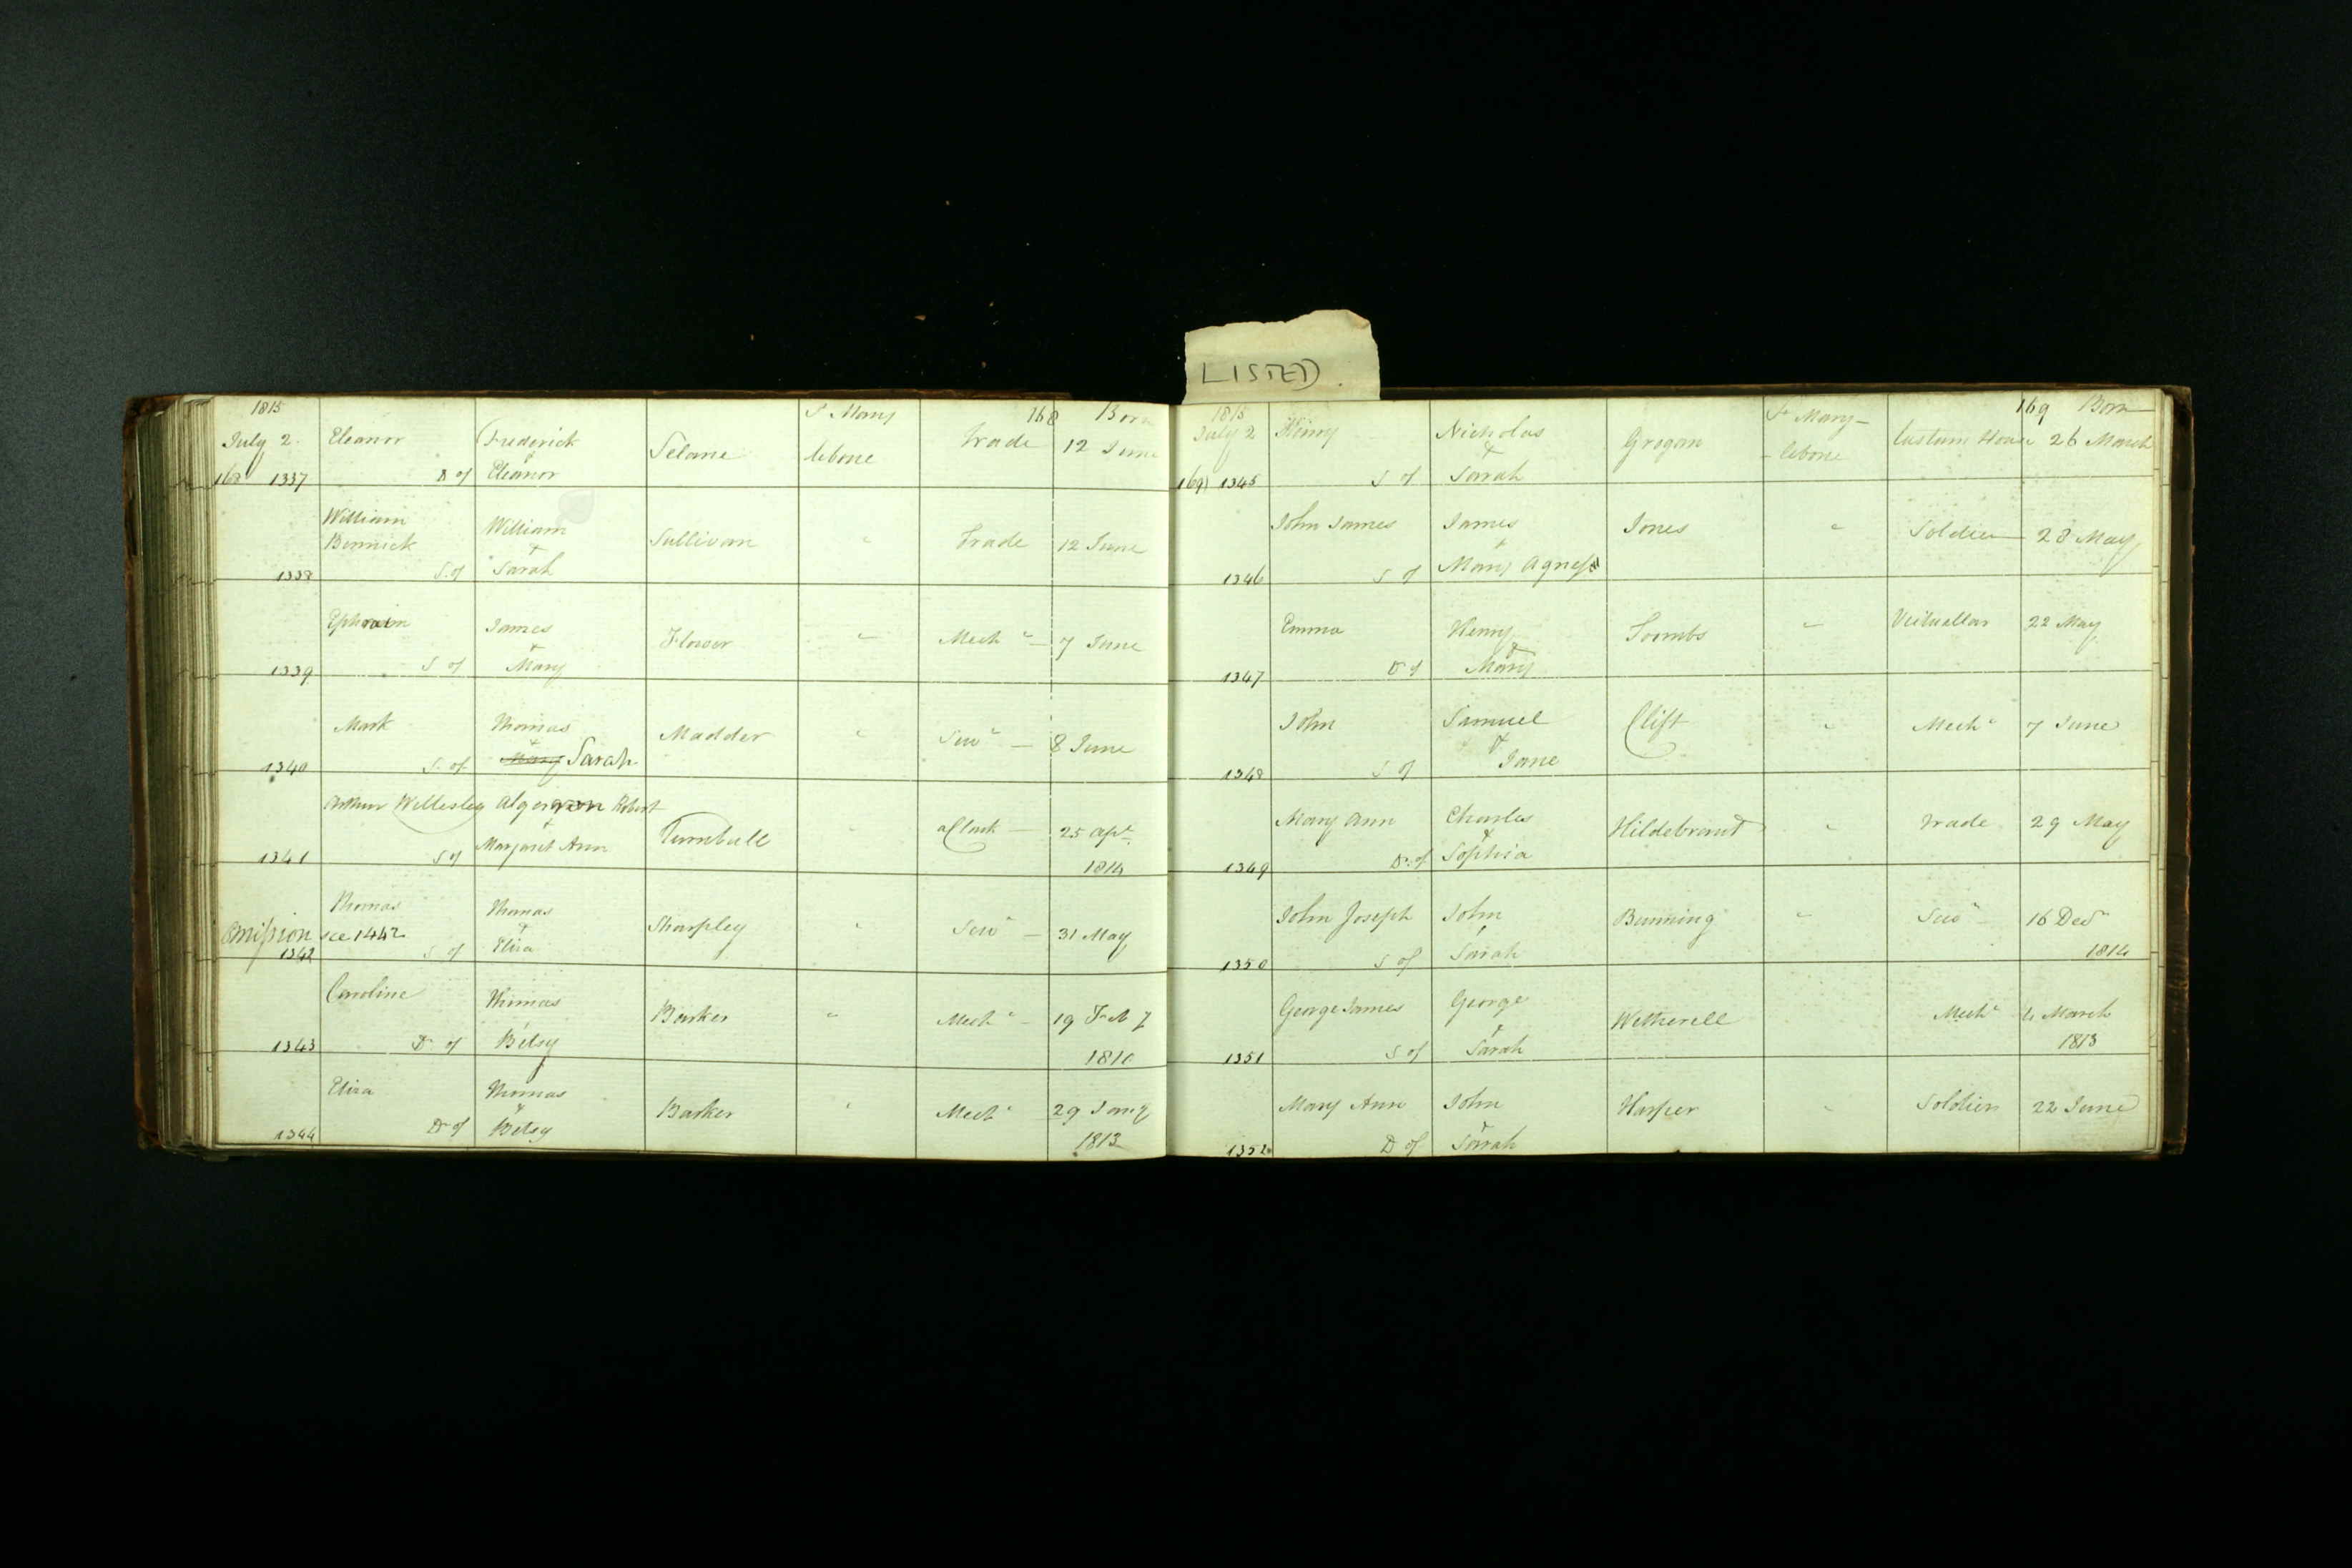 LISTED.
1815 St Mary 168 Born
July 2. Eleanor Frederick & Selame lebone Trade 12 June
168 1337 D of Eleanor
William William & Sullivan " Trade 12 June
Bennick
1338 S. of Sarah
Ephraim James & Flower " Mech " 7 June
1339 S of Mary
Mark Thomas & Madder " Serv " 8 June
1340 S. of Mary Sarah
Arthur Wellesley Algernon Robert & Turnbull " a Clark 25 Apl
1341 S of Margaret Ann 1814
Thomas Thomas & Sharpley " Serv 31 May
Omission see 1442
1342 S of Eliza
Caroline Thomas & Barker " Mech " 19 Feby
1343 D of Betsy 1810
Eliza Thomas & Barker " Mech " 29 Jany
1344 D of Betsy 1813
1815 St Mary- 169 Born
July 2 Henry Nicholas & Grogan -lebone Custum House 26 March
169 1345 S of Sarah
John James James & Jones " Soldier 28 May
1346 S of Mary Agness
Emma Henry & Toombs " Victuallar 22 May
1347 D of Mary
John Samuel & Clift " Mech " 7 June
1348 S of Jane
Mary Ann Charles & Hildebrant " Trade 29 May
1349 D. of Sophia
John Joseph John & Bunning " Serv 16 Decr
1350 S of Sarah 1814
George James George & Wetherell Mech " 4 March
1351 S of Sarah 1813
Mary Ann John & Harper " Soldier 22 June
1352 D of Sarah